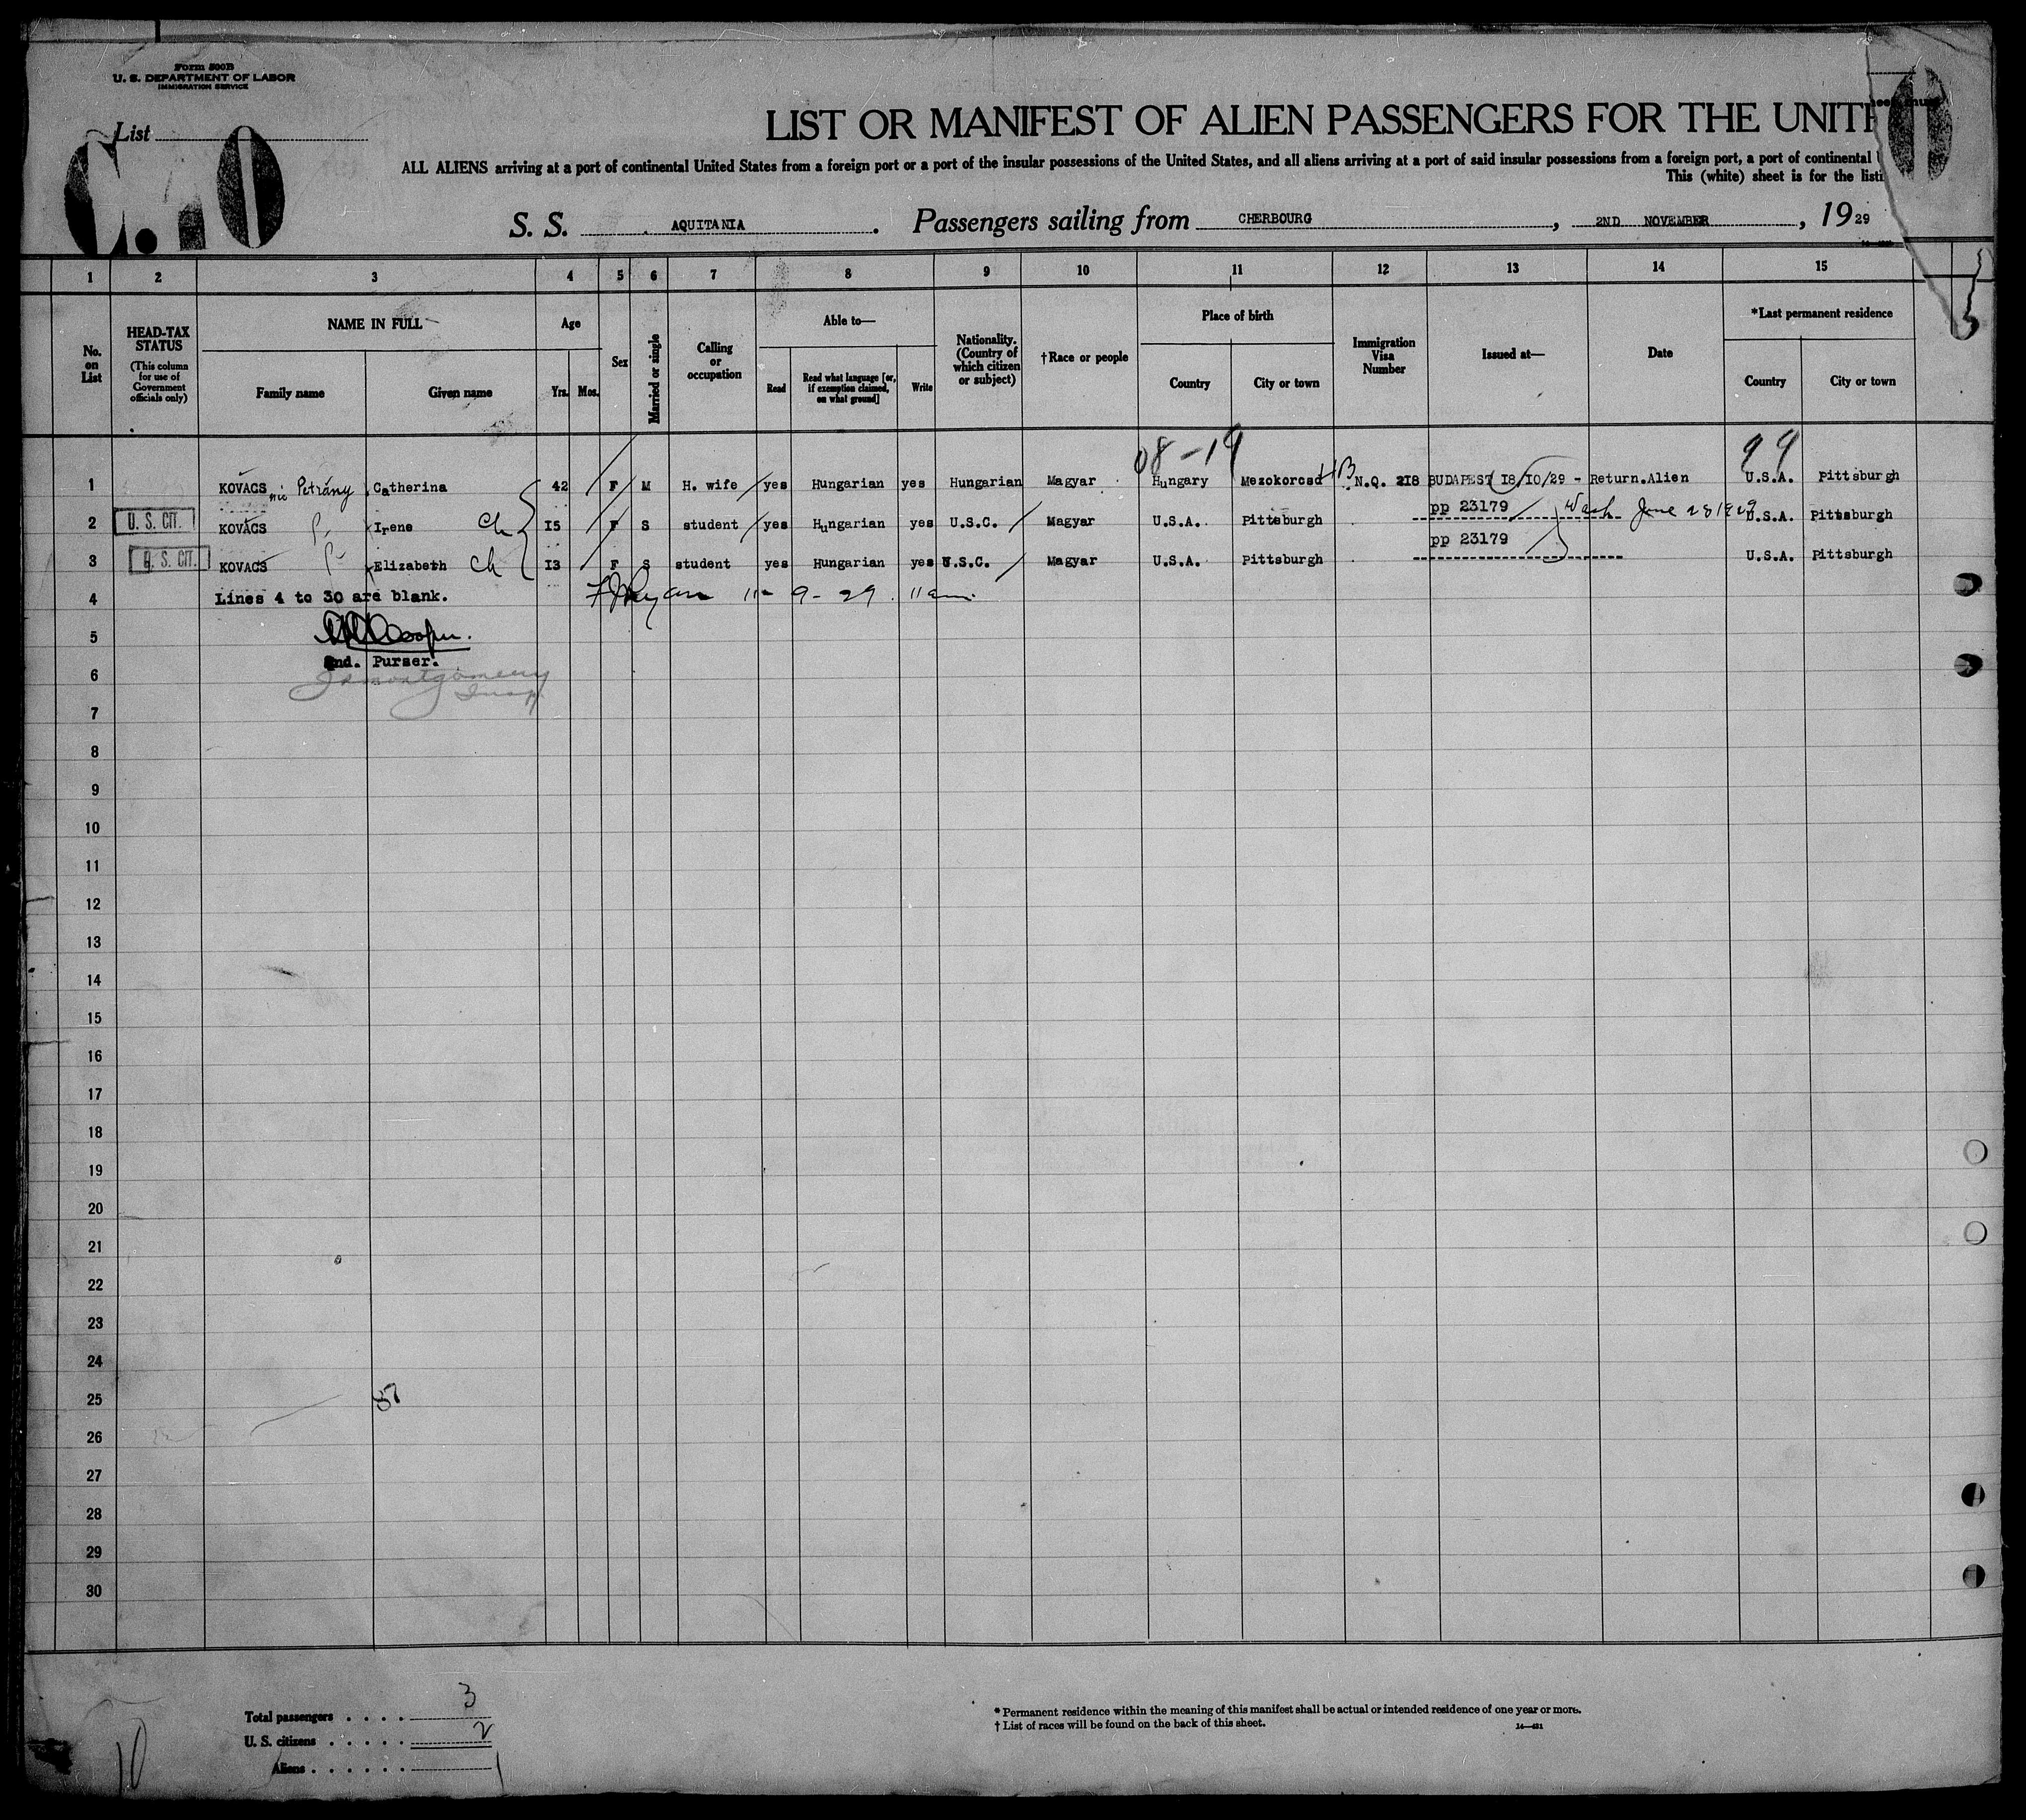 Form 500B
U. S. DEPARTMENT OF LABOR
IMMIGRATION SERVICE
List
LIST OR MANIFEST OF ALIEN PASSENGERS FOR THE UNIT
ALL ALIENS arriving at a port of continental United States from a foreign port or a port of the insular possessions of the United States, and all aliens arriving at a port of said insular possessions from a foreign port, a port of continental
This (white) sheet is for the listi
S. S. AQUITANIA. Passengers sailing from CHERBOURG, 2ND NOVEMBER, 1929
1 2 3 4 5 6 7 8 9 10 11 12 13 14 15
No. on List
HEAD-TAX STATUS
(This column for use of Government officials only)
NAME IN FULL
Family name Given name
Age
Yrs. Mos.
Sex
Married or single
Calling or occupation
Able to—
Read
Read what language [or, if exemption claimed, on what ground]
Write
Nationality. (Country of which citizen or subject)
†Race or people
Place of birth
Country City or town
Immigration Visa Number
Issued at—
Date
*Last permanent residence
Country City or town
08-19 99
1 KOVACS née Petrány Catherina 42 F M H. wife yes Hungarian yes Hungarian Magyar Hungary Mezokorcsd N.Q. 218 BUDAPEST 18/10/29 - Return.Alien U.S.A. Pittsburgh
pp 23179
2 U. S. CIT. KOVACS Irene ch 15 F S student yes Hungarian yes U.S.C. Magyar U.S.A. Pittsburgh Wash June 28 1929 U.S.A. Pittsburgh
pp 23179
3 U. S. CIT. KOVACS Elizabeth ch 13 F S student yes Hungarian yes U.S.C. Magyar U.S.A. Pittsburgh U.S.A. Pittsburgh
4 Lines 4 to 30 are blank. 11-9-29 11am
5
2nd. Purser.
6 Montgomery
Insp
7
8
9
10
11
12
13
14
15
16
17
18
19
20
21
22
23
24
25
26
27
28
29
30
Total passengers 3
U. S. citizens 2
Aliens 1
10
* Permanent residence within the meaning of this manifest shall be actual or intended residence of one year or more.
† List of races will be found on the back of this sheet.
14—431